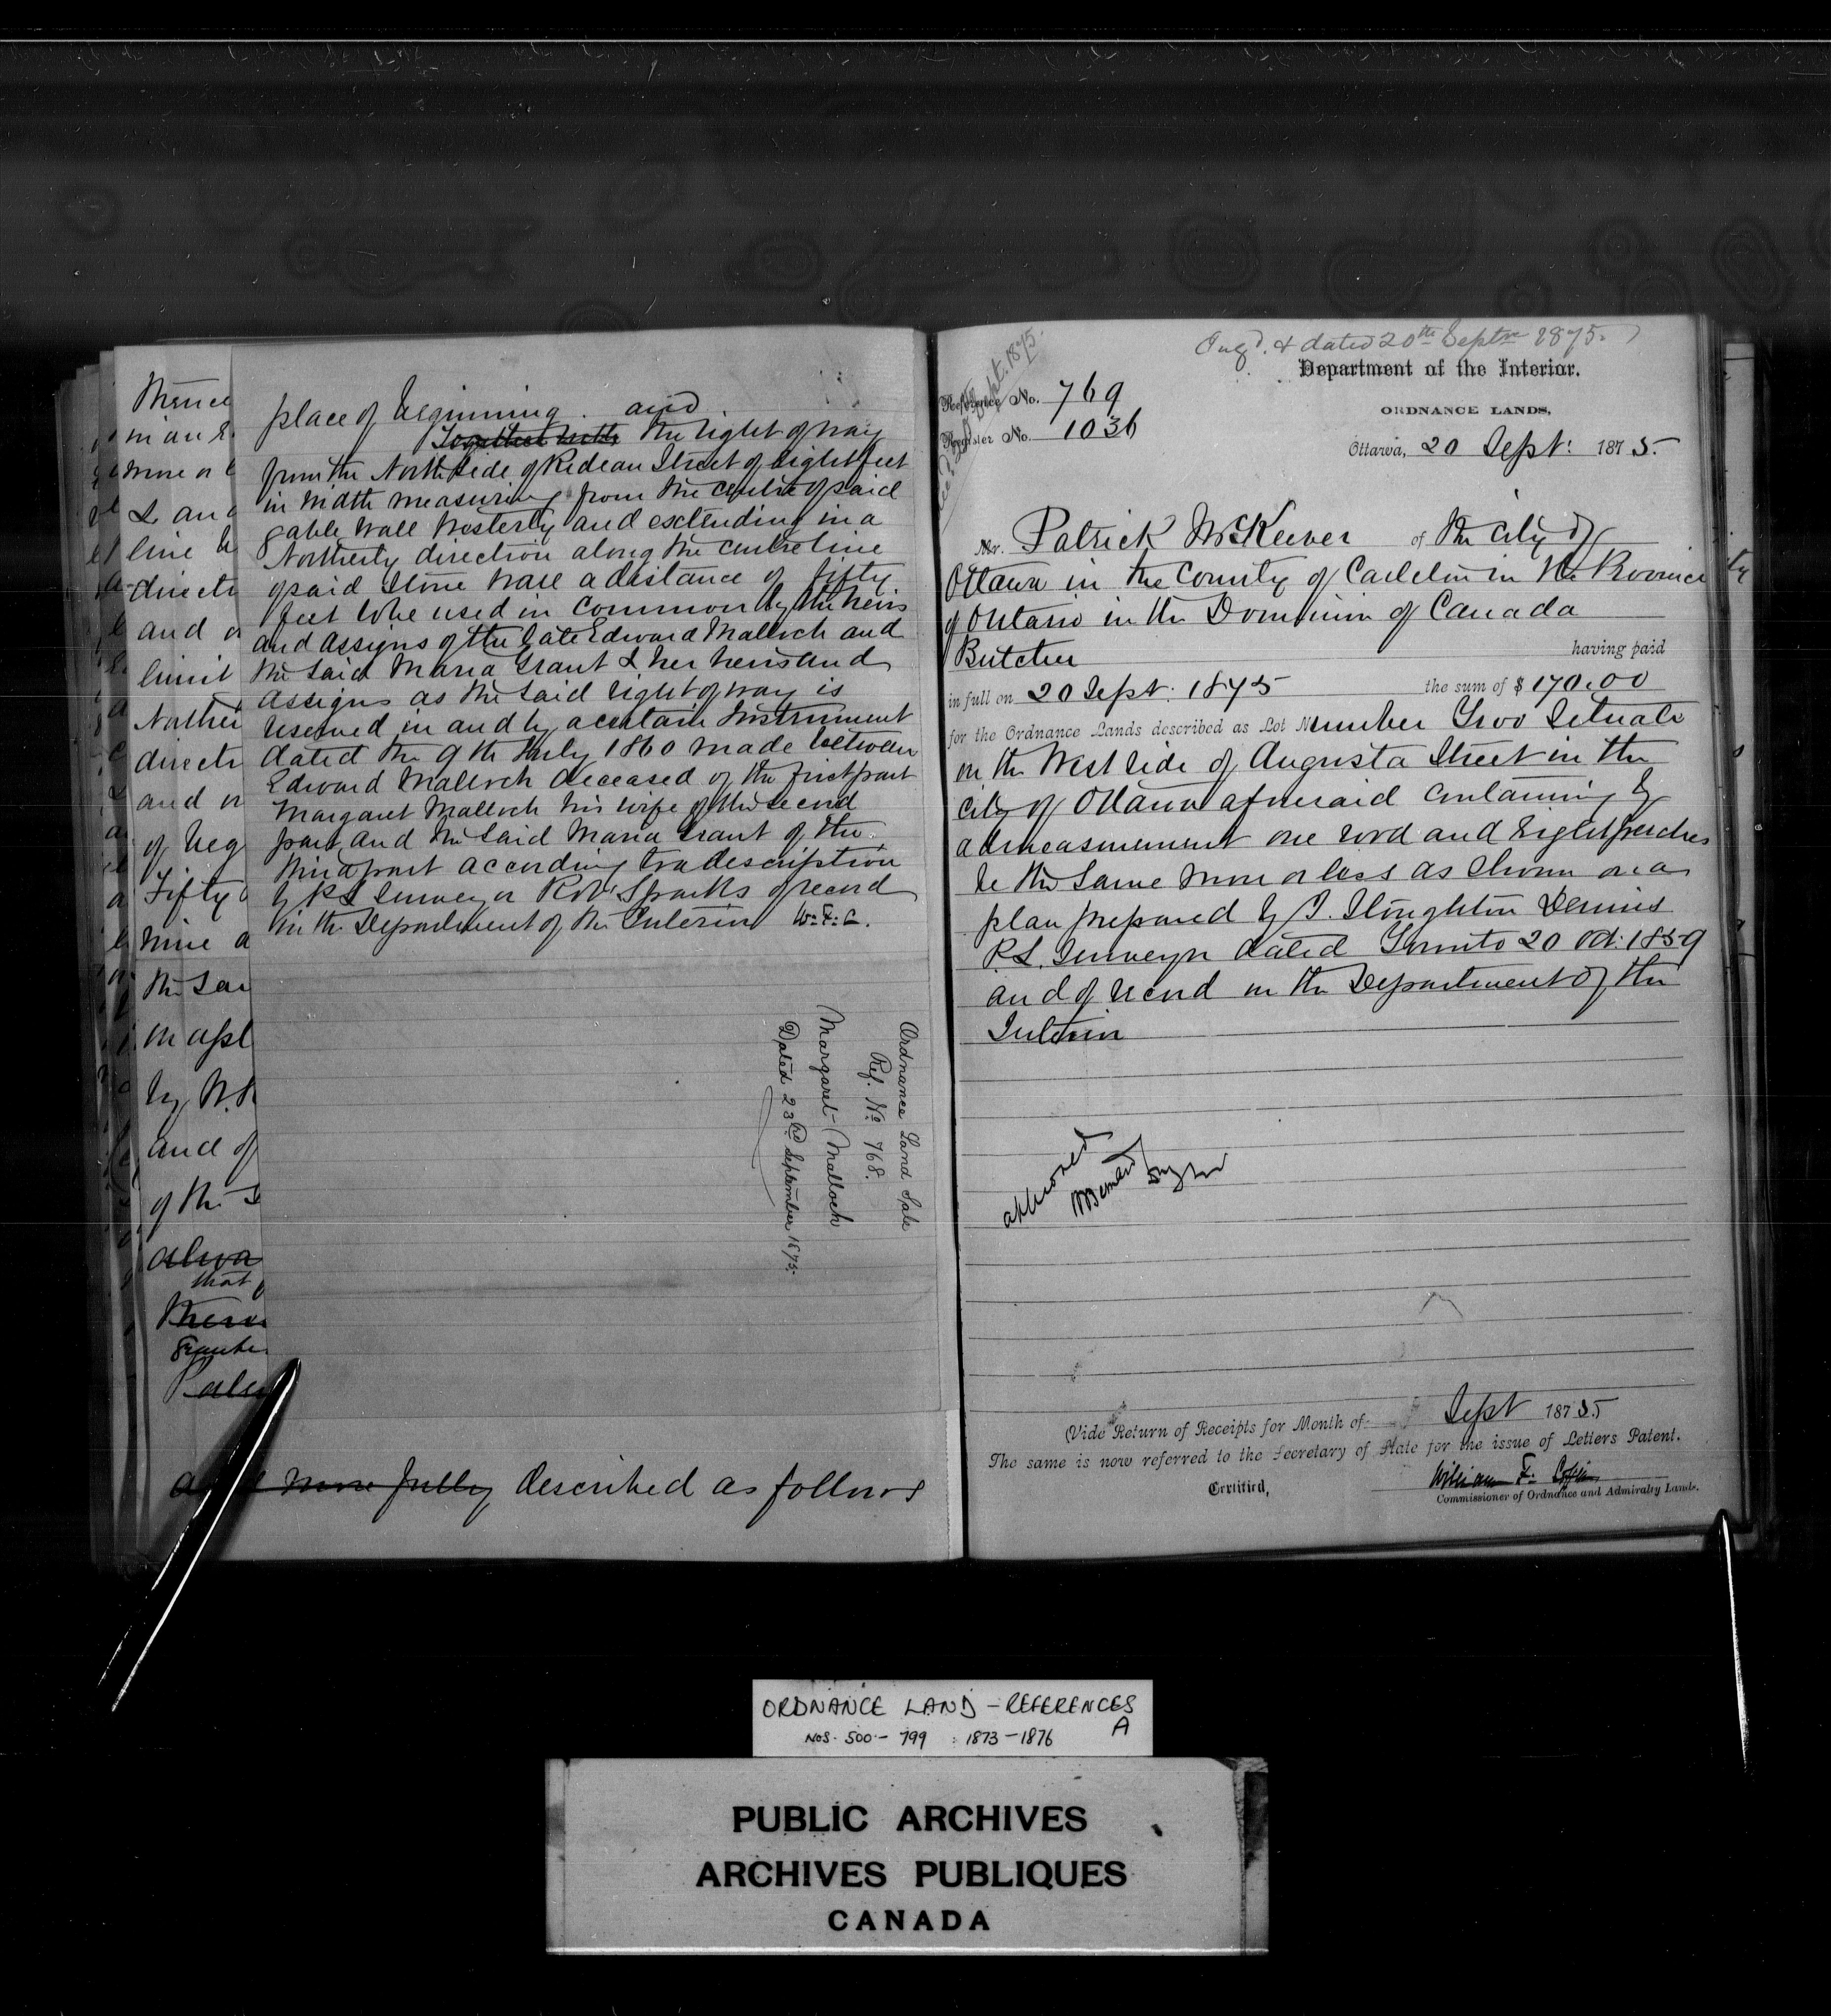 Thence
in an E
nine or
& and
line
directi
and o
limit
Nother
directi
and n
of beg
Fifty
nine a
the san
on a pl
by W.
and of
of the
that
place of beginning. and
Together with the right of way
from the North side of Rideau Street of Eight feet
in width measuring from the centre of said
gable wall Westerly and extending in a
Northerly direction along the centre line
of said stone wall a distance of fifty
feet to be used in common by the heirs
and assigns of the late Edward Malloch and
the said Maria Grant & her heirs and
assigns as the said right of way is
reserved in and by a certain Instrument
dated the 9th July 1860 made between
Edward Malloch deceased of the first part
Margaret Malloch his wife of the second
part and the said Maria Grant of the
third part according to a description
by P.L. Surveyor Robt Sparks of record
in the Department of the Interior W.F.C.
Ordnance Land Sale
Ref. No 768.
Margaret Malloch
Dated 23rd September 1875.
more fully described as follows
Engd. & dated 20th Septr 1875.
Department of the Interior.
ORDNANCE LANDS,
Reference No. 769
Register No. 1036
Ottawa, 20 Sept: 1875.
Mr. Patrick McKeever of the City of
Ottawa in the County of Carleton in the Province
of Ontario in the Dominion of Canada
Butcher having paid
in full on 20 Sept. 1875 the sum of $ 170.00
for the Ordnance Lands described as Lot Number Two situate
on the West side of Augusta Street in the
City of Ottawa aforesaid containing by
admeasurement one rood and Eight perches
be the same more or less as shown on a
plan prepared by J. Stoughton Dennis
P.L. Surveyor dated Toronto 20 Oct. 1859
and of record in the Department of the
Interior
approved
(Vide Return of Receipts for Month of Sept 1875
The same is now referred to the Secretary of State for the issue of Letters Patent.
Certified, William F. Coffin
Commissioner of Ordnance and Admiralty Lands.
ORDNANCE LAND - REFERENCES
NOS. 500 - 799 : 1873 - 1876 A
PUBLIC ARCHIVES
ARCHIVES PUBLIQUES
CANADA